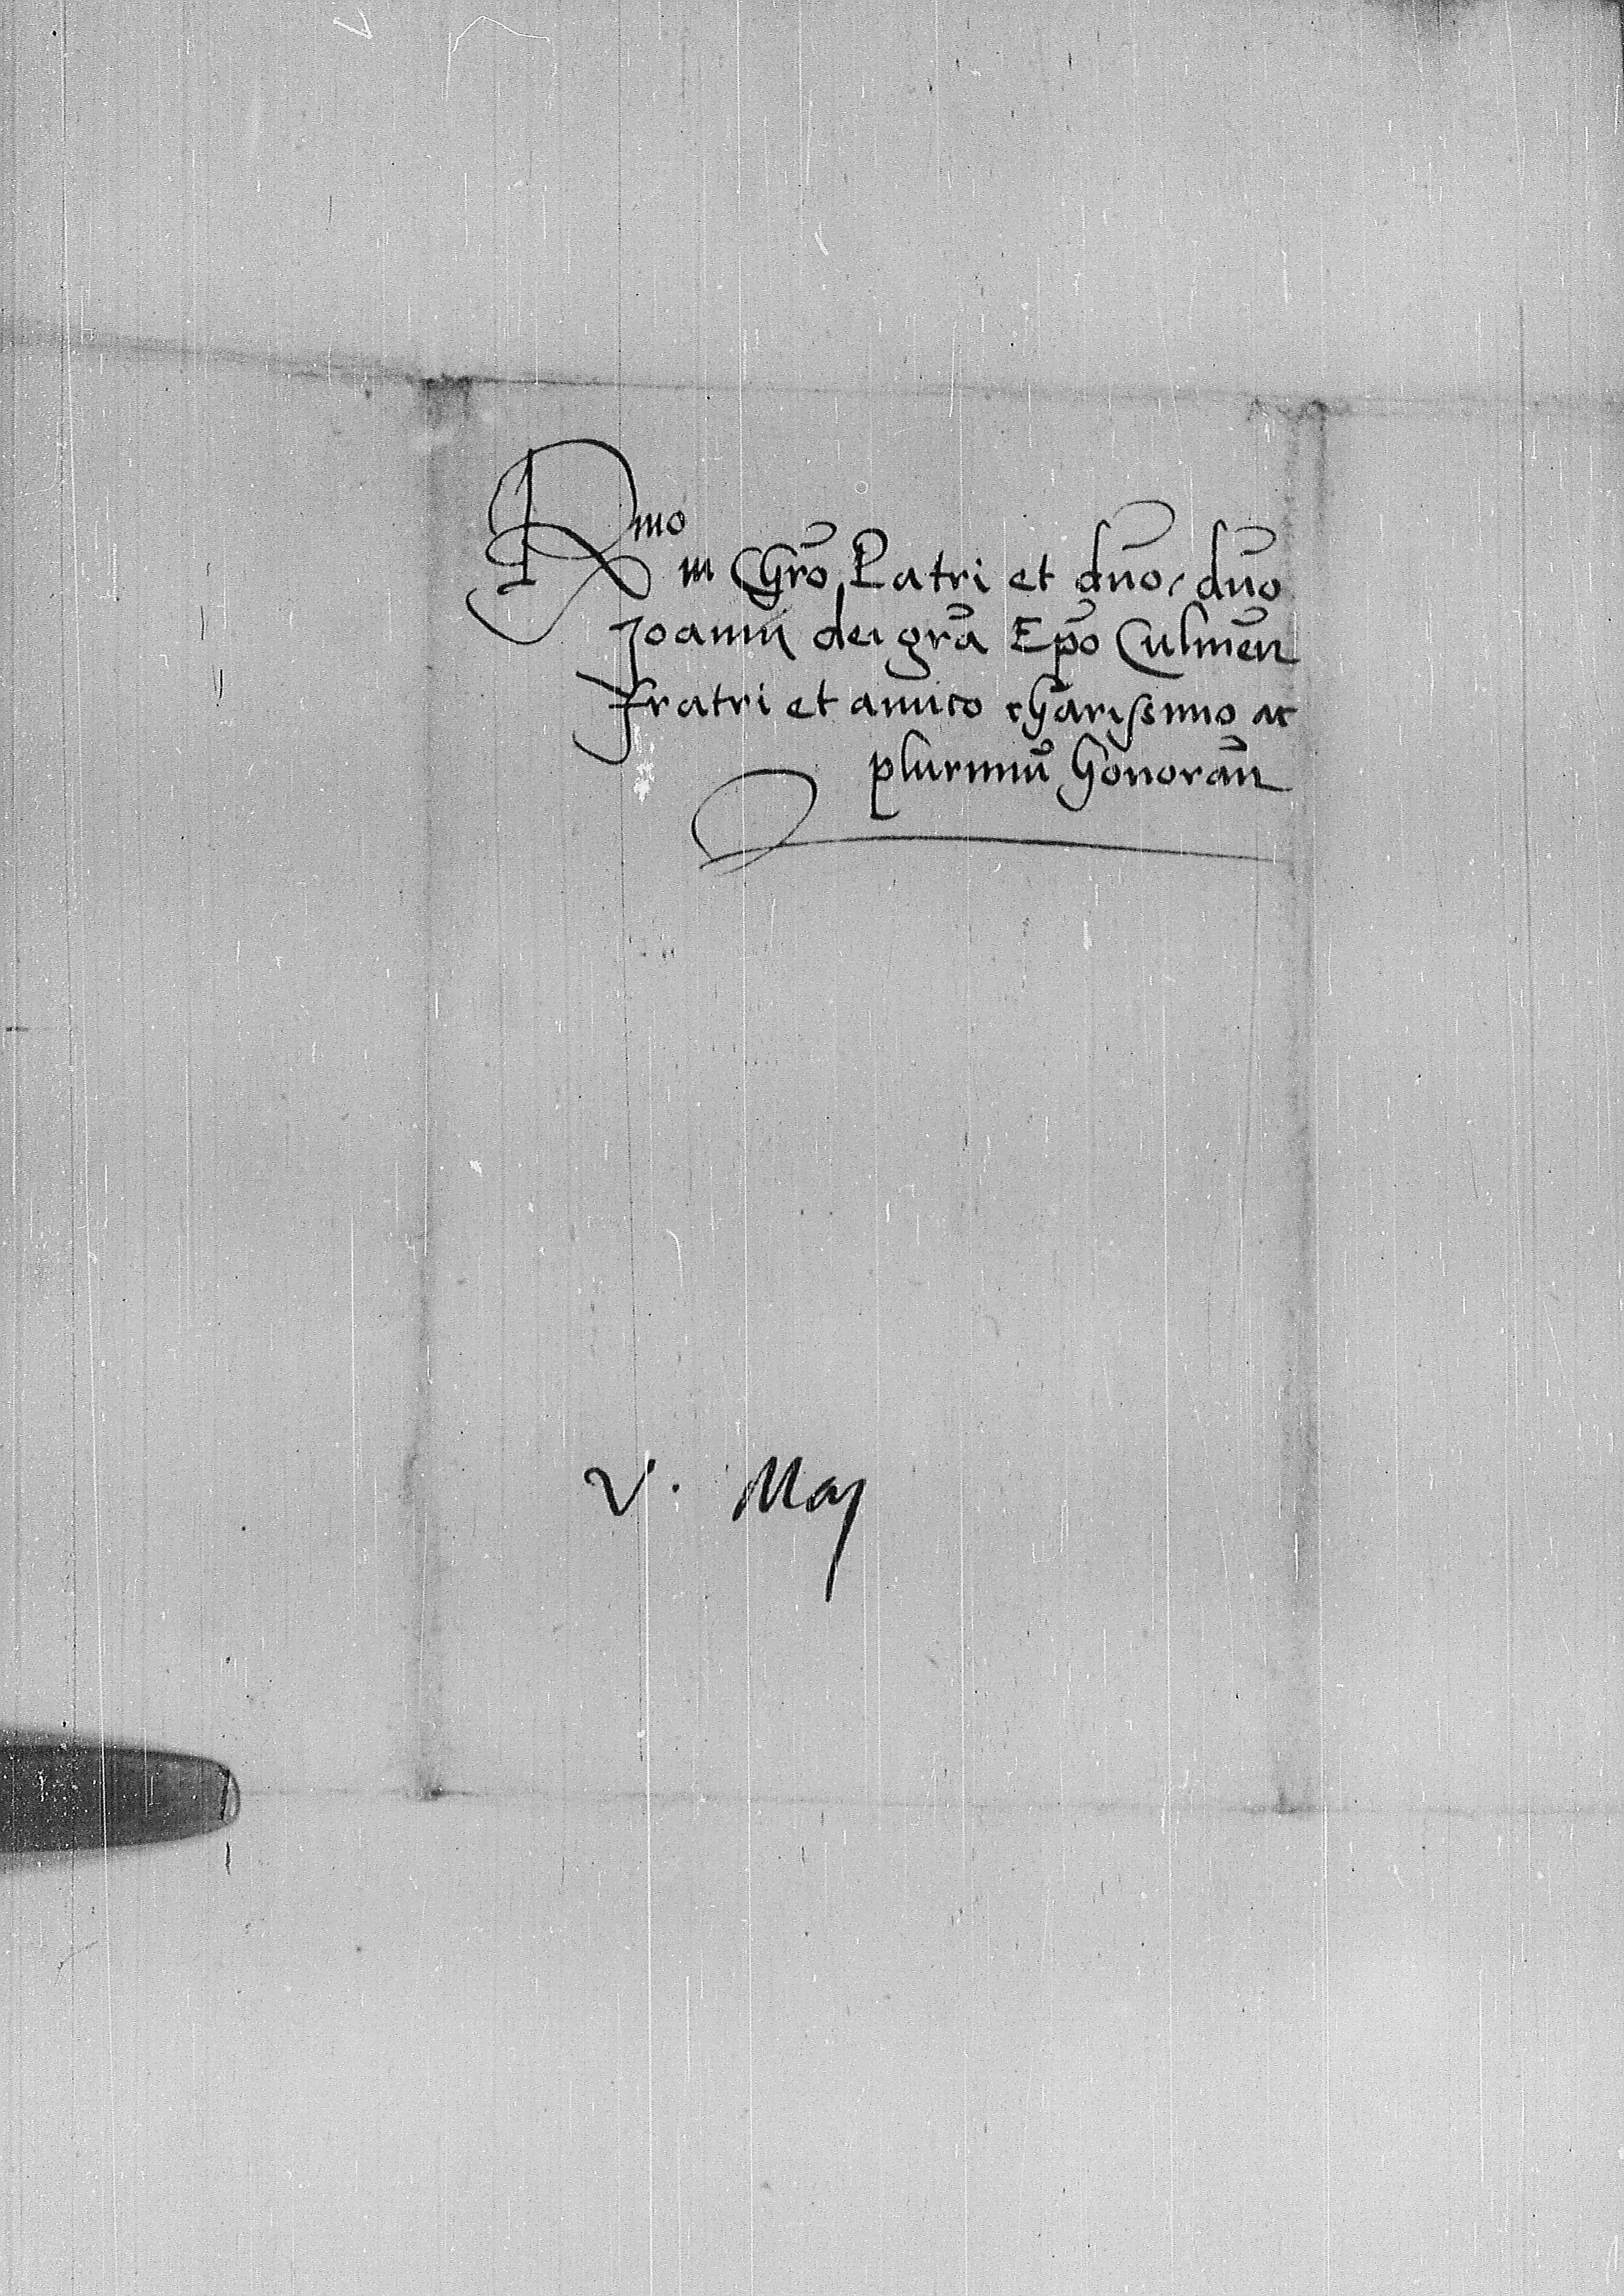 Rmo
in Chro Patri et dno, dno
Joanni dei gra Epo Culmen
fratri et amico charissimo ac
plurimu honoran
V. May